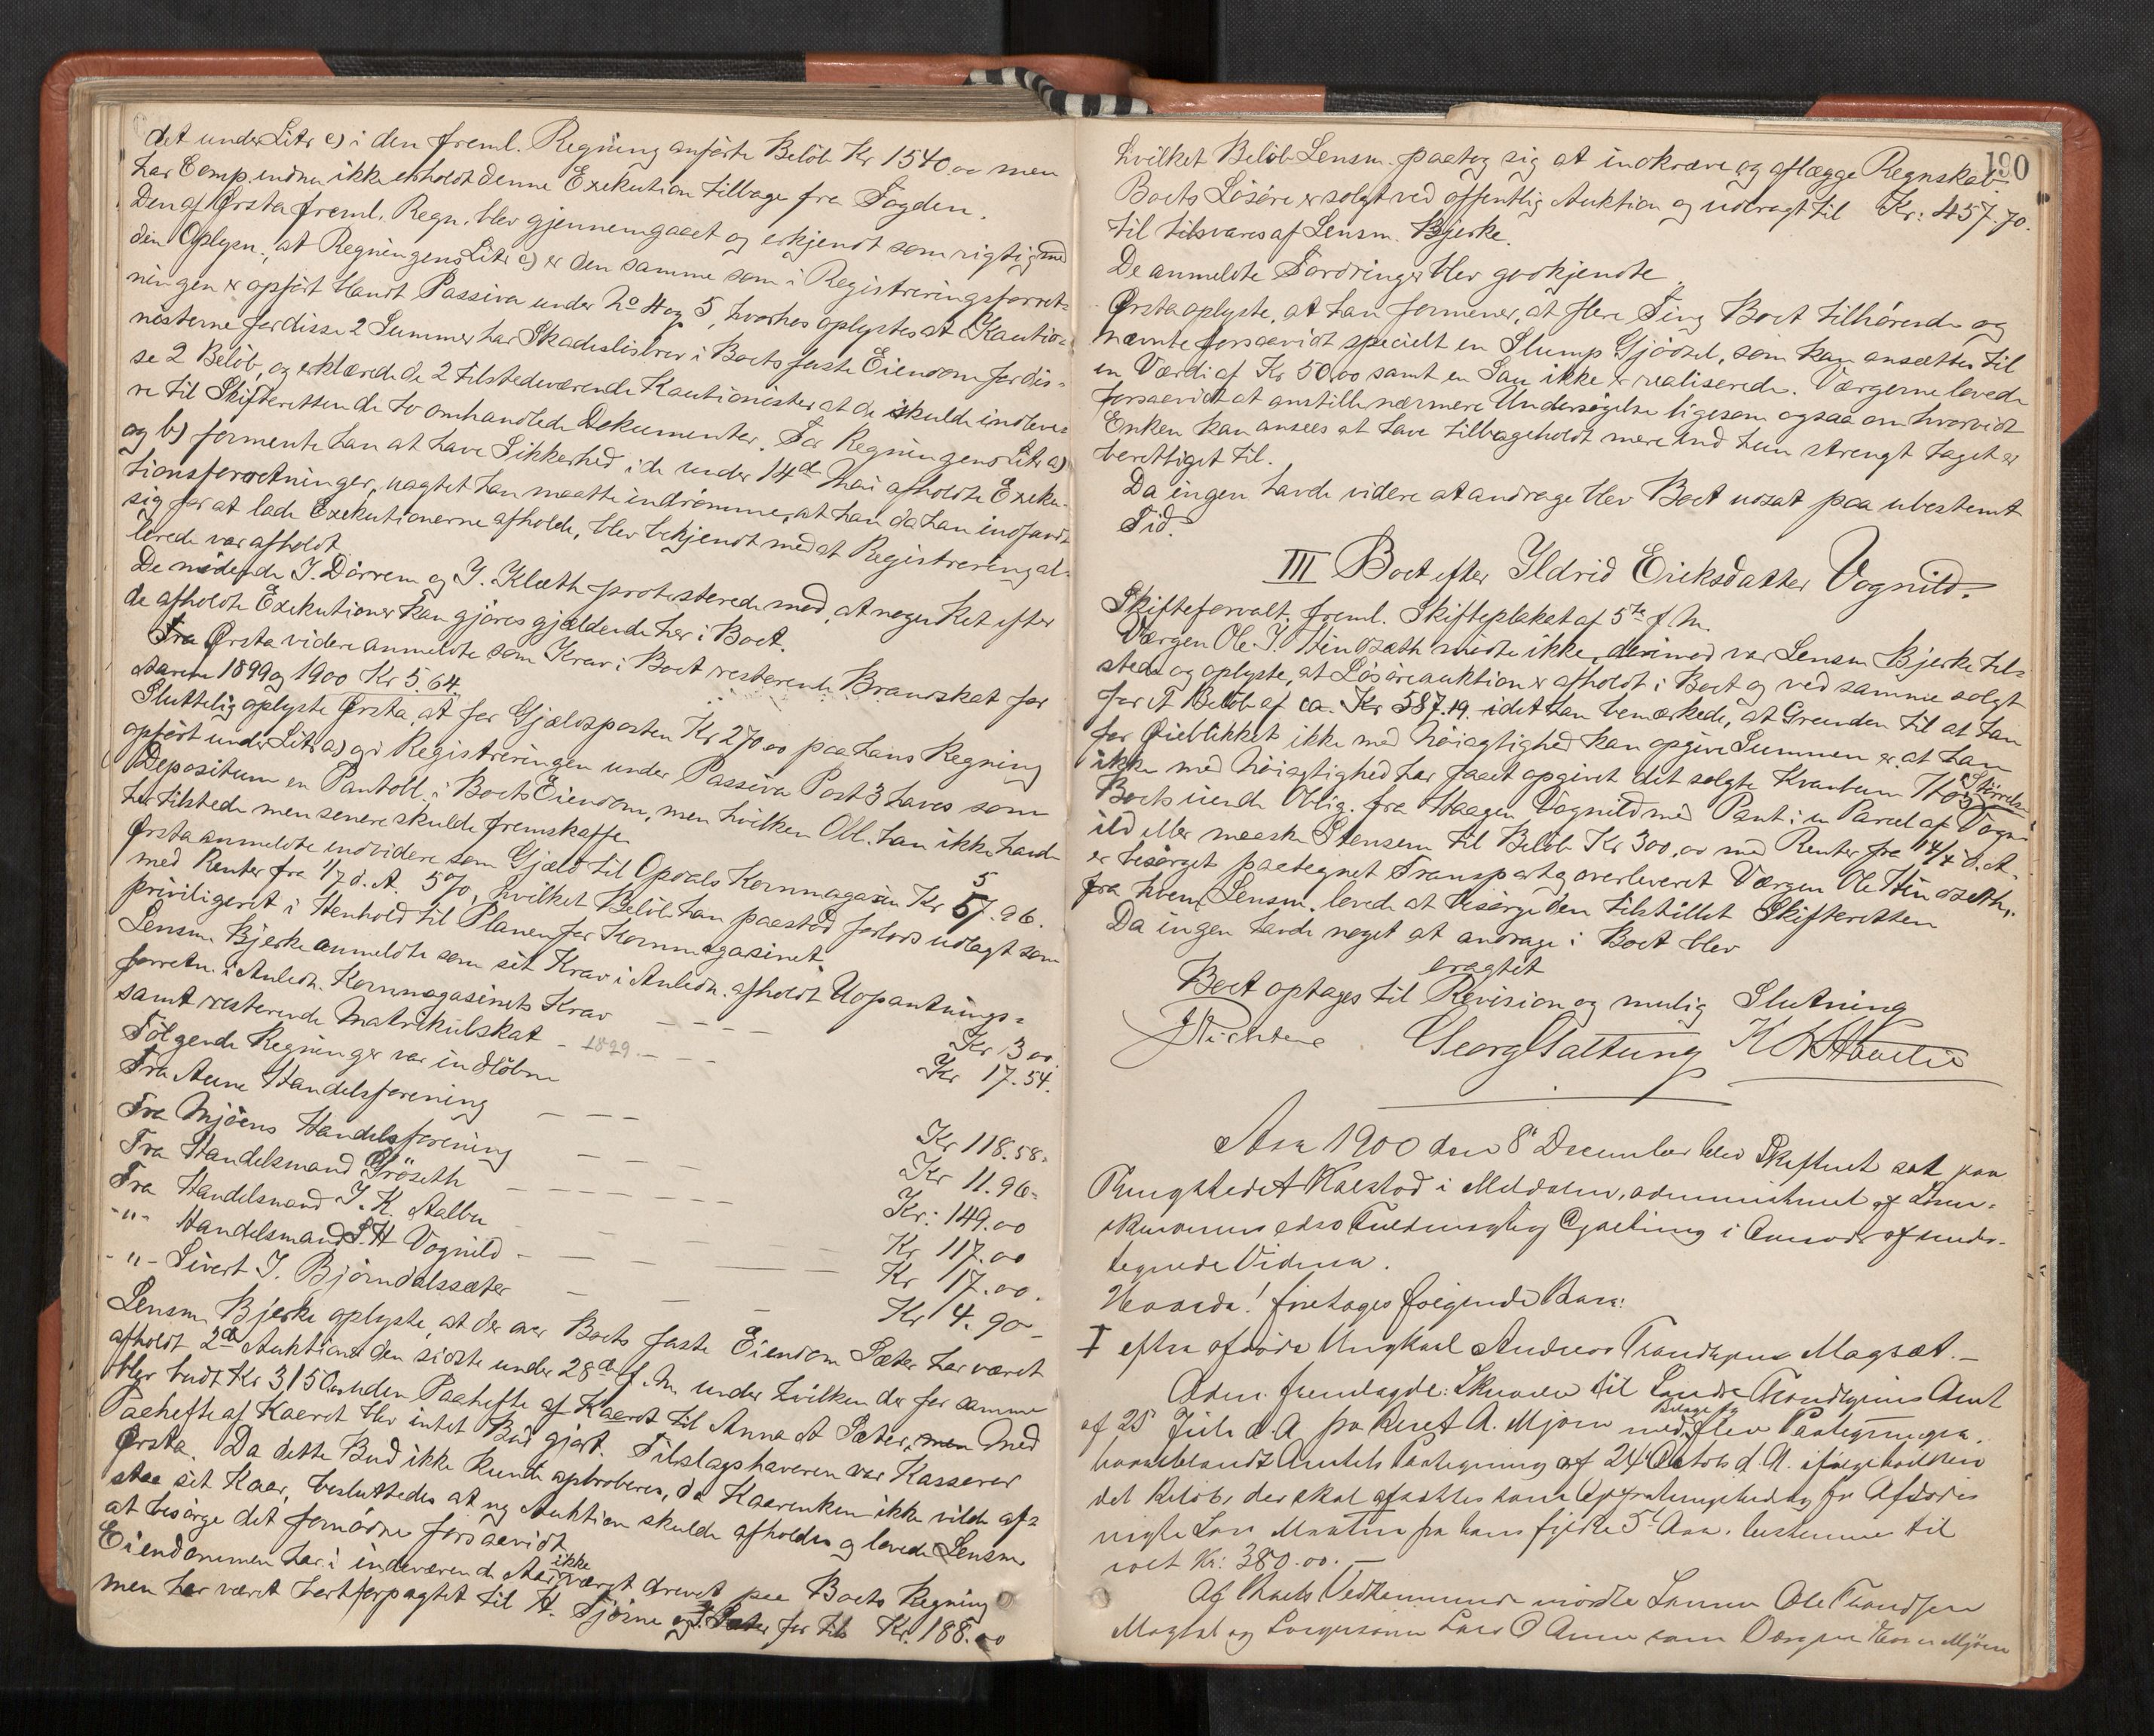 det under Litr c) i den freml. Regning anførte Beløb Kr 1540.00 men
har Comp. endnu ikke erholdt denne Exekution tilbage fra Fogden.
Den af Ørsta freml. Regn. blev gjennemgaaet og erkjendt som rigtig med
den Oplysn., at Regningens Litr c) er den samme som i Registreringsforret-
ningen er opført blandt Passiva under No 4 og 5, hvorhos oplystes at Kautio-
nisterne for disse 2 Summer har Skadesløsbrev i Boets faste Eiendom for dis-
se 2 Beløb, og erklærede de 2 tilstedeværende Kautionister at de skulde indleve-
re til Skifteretten de to omhandlede Dokumenter. For Regningens Litr a)
og b) formente han at have Sikkerhed i de under 14de Mai afholdte Exeku-
tionsforretninger, uagtet han maatte indrømme, at han da han indfandt
sig for at lade Exekutionerne afholde, blev bekjendt med at Registrering al-
lerede var afholdt.
De mødende J. Dørrem og J. Klæth protesterede mod, at nogen Ret efter
de afholdte Exekutioner kan gjøres gjældende her i Boet.
Fra Ørsta videre anmeldte som Krav i Boet resterende Brandskat for
Aarene 1899 og 1900 Kr 5.64.
Sluttelig oplyste Ørsta, at for Gjældsposten Kr 270.00 paa hans Regning
opført under Litr a) og i Registreringen under Passiva Post 3 haves som
Depositum en Pantobl. i Boets Eiendom, men hvilken Obl. han ikke havde
her tilstede men senere skulde fremskaffe
Ørsta anmeldte endvidere som Gjæld til Opdals Kornmagasin Kr 57.96.
5
med Renter fra 1/7 d. A. 5%, hvilket Beløb han paastod forlods udlagt som
priviligeret i Henhold til Planen for Kornmagasinet.
Lensm. Bjerke anmeldte som sit Krav i Anledn. afholdt Udpantnings-
forretn. i Anledn. Kornmagasinets Krav - - - - Kr 3.00
samt resterende Matrikulskat - 1899 - - - Kr 17.54.
Følgende Regninger var indløbne
Fra Aune Handelsforening - - - Kr 118.58.
Fra Mjøens Handelsforening - - - Kr 11.96.
Fra Handelsmand Grøseth - - - Kr: 149.00
Fra Handelsmand J. K. Aalbu - - - Kr 117.00
-"- Handelsmand S. H Vognild - - - Kr 17.00.
-"- Sivert J. Bjørndalssæter - - - Kr 4.90-
Lensm. Bjerke oplyste, at der over Boets faste Eiendom Sæter har været
afholdt 2de Auktioner den sidste under 28de f. M. under hvilken der for samme
blev budt Kr 3150.00 uden Paahefte af Kaaret til Anna A Sæter, men Med
Paahefte af Kaaret blev intet Bud gjort. Tilslagshaveren var Kasserer
Ørsta. Da dette Bud ikke kunde approberes, da Kaarenken ikke vilde af-
staa sit Kaar, besluttedes at ny Auktion skulde afholdes og lovede Lensm.
at besørge det fornødne forsaavidt.
Eiendommen har i indeværende Aar ikke været drevet paa Boets Regning
men har været bortforpagtet til H. Fjørne og J. Sæter for tils Kr. 188.00
190
hvilket Beløb Lensm. paatog sig at indkræve og aflægge Regnskab.
Boets Løsøre er solgt ved offentlig Auktion og udbragt til Kr: 457.70.
til Tilsvares af Lensm. Bjerke.
De anmeldte Fordringer blev godkjendte
Ørsta oplyste, at han formener, at flere Ting Boet tilhørende og
nævnte forsaavidt specielt en Slump Gjødsel, som kan ansættes til
en Værdi af Kr 50.00 samt en Sau ikke er realiserede. Værgerne lovede
forsaavidt at anstille nærmere Undersøgelse ligesom ogsaa om hvorvidt
Enken kan ansees at have tilbageholdt mere end hun strengt taget er
berettiget til.
Da ingen havde videre at andrage blev Boet udsat paa ubestemt
Tid.
III Boet efter Ildrid Eriksdatter Vognild.
Skifteforvalt. freml. Skifteplakat af 5te f. M.
Værgen Ole J. Hindseth mødte ikke, derimod var Lensm Bjerke til-
stede og oplyste, at Løsøreauktion er afholdt i Boet og ved samme solgt
for et Beløb af ca. Kr 587.19. idet han bemærkede, at Grunden til at han
for Øieblikket ikke med Nøiagtighed kan opgive Summen er, at han
ikke med Nøiagtighed har faaet opgivet det solgte Kvantum Høs Størrelse
Boets eiende Oblig. fra Haagen Vognild med Pant i en Parcel af Vogn-
ild eller maaske Stensem til Beløb Kr 300,00 med Renter fra 14/4 d. A.
er besørget paategnet Transport og overleveret Værgen Ole Hindseth,
fra hvem Lensm. lovede at besørge den tilstillet Skifteretten
Da ingen havde noget at andrage i Boet blev
eragtet
Boet optages til Revision og mulig Slutning
J Richter Georg Galtung K H Hoelie
Aar 1900 den 8de December blev Skifteret sat paa
Thingstedet Kalstad i Meldalen, administreret af Soren-
skriverens edsv Fuldmægtig Galtung i Overvær af under-
tegnede Vidner.
Hvorda! foretoges følgende Boer:
I efter afdøde Ungkarl Andreas Trondsen Magsæt. -
Adm. fremlagde: Skrivelse til Søndre Trondhjems Amt
af 25 Juli d. A fra Beret A. Mjøen med Bilage og flere Paategninger.
hvoriblandt Amtets Paategning af 24 Octob d. A. ifølge hvilken
det Beløb, der skal afsættes som Opfostringsbidrag for Afdødes
uægte Søn Martin fra hans fyldte 5te Aar. bestemmes til
ialt Kr: 380.00. -
Af Boets Vedkommende mødte Sønnen Ole Trondsen
Magsæt og Lars O Aune som Værge for Mjøen